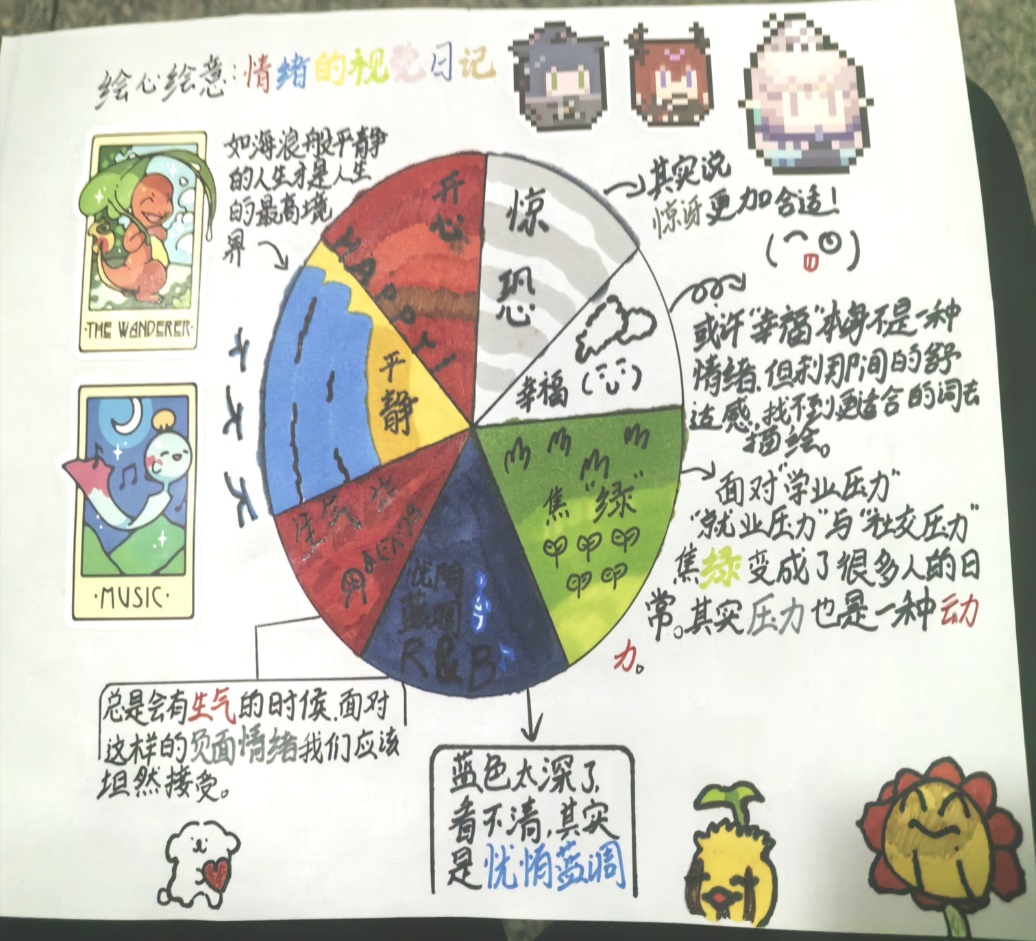 绘心绘意：情绪的视觉日记
如海浪般平静
的人生才是人生
的最高境
界
THE WANDERER
·MUSIC·
开心
惊恐
幸福
平静
焦“绿”
生气
忧郁
蓝调
R&B
其实说
惊讶更加合适！
或许“幸福”本身不是一种
情绪，但利那间的舒
适感，找不到更适合的词去
描绘。
面对“学业压力”
“就业压力”与“社交压力”
焦绿变成了很多人的日
常。其实压力也是一种动
力。
总是会有生气的时候，面对
这样的负面情绪我们应该
坦然接受。
蓝色太深了，
看不清，其实
是忧悄蓝调